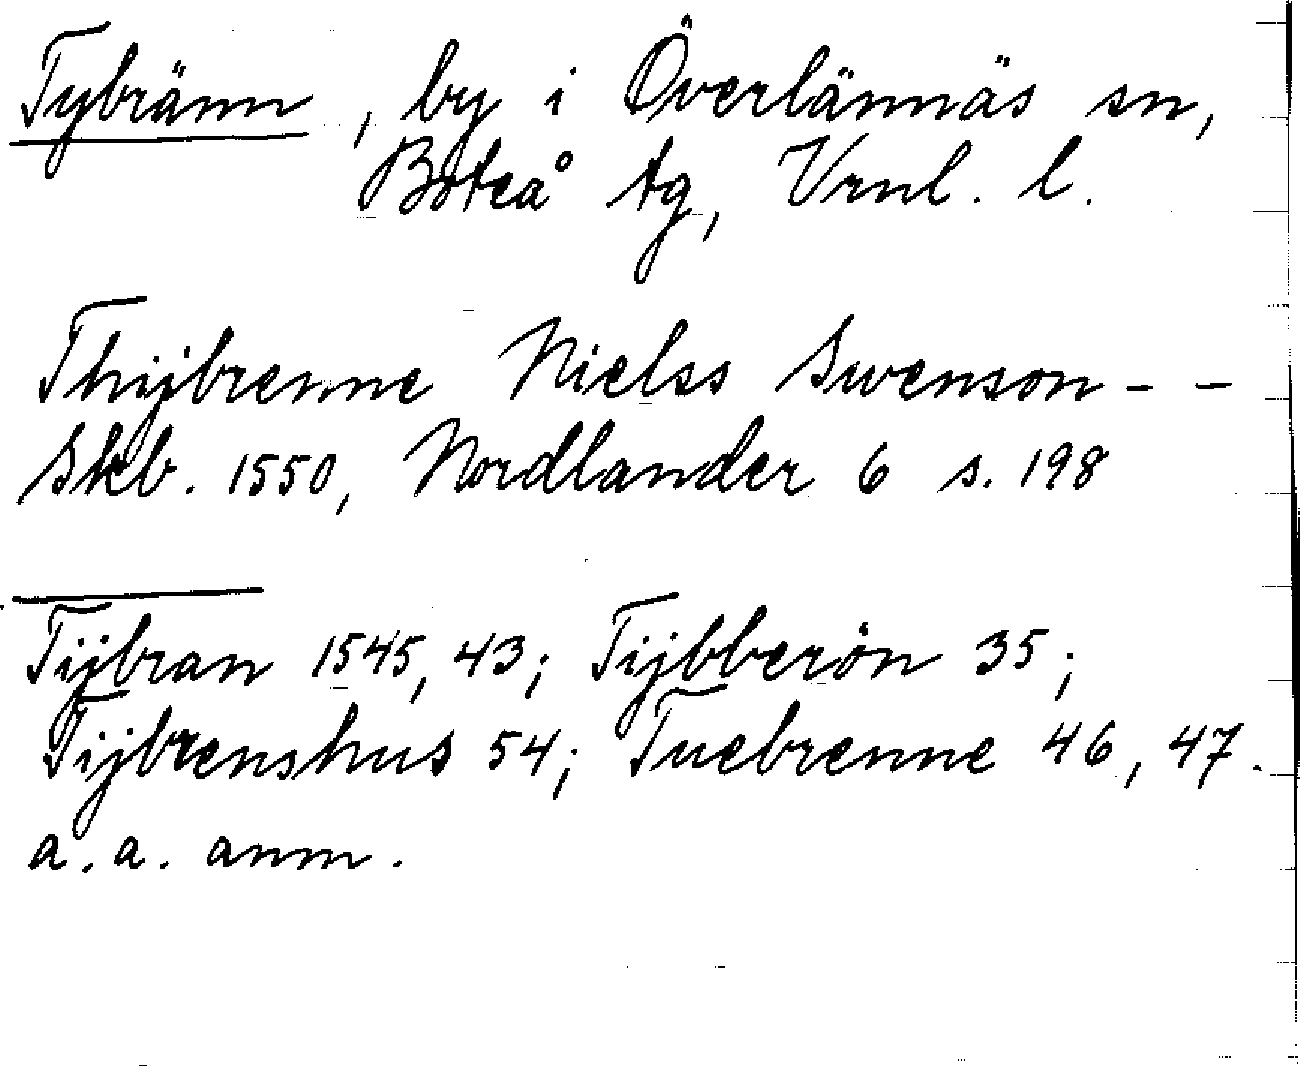 Tybränn, by i Överlännäs sn,
Boteå tg, Vrnl. l.
Thijbrenne Nielss Swenson - -
Skb. 1550, Nordlander 6 s. 198
Tijbran 1545, 43; Tijbberön 35;
Tijbrenshus 54; Tuebrenne 46, 47.
a. a. anm.